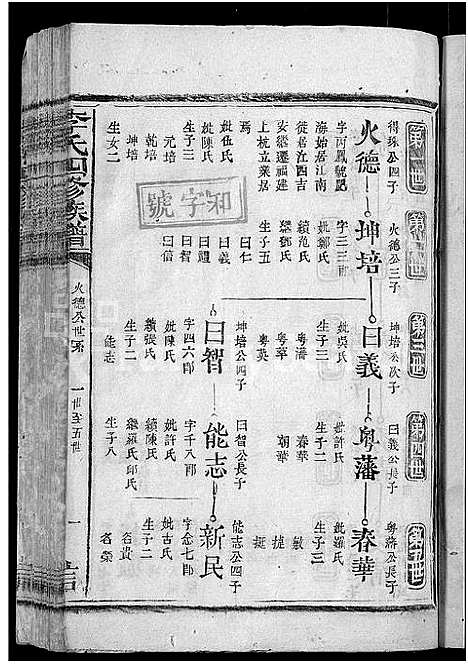 李氏四修族譜
火德公世系
一世至五世
一
第一世
得珠公四子
火德
字丙鳳號記
海始居江南
安繼居江西吉
安繼遷福建
上杭立業居
焉
妣伍氏
生子三
妣陳氏
元培
乾培
生女二
和字號
第二世
火德公三子
坤培
字三三郎
妣鄭氏
續范氏
繼鄧氏
生子五
曰仁
曰義
曰禮
曰智
曰信
第三世
坤培公次子
曰義
妣吳氏
生子三
粵藩
粵華
粵英
坤培公四子
曰智
字四六郎
妣陳氏
續張氏
生子二
能志
第四世
曰義公長子
粵藩
妣許氏
生子二
春華
朝華
曰智公長子
能志
字千八郎
妣許氏
續陳氏
繼羅氏邱氏
生子八
第五世
粵藩公長子
春華
妣羅氏
生子三
敏
捷
挺
能志公四子
新民
字念七郎
妣古氏
生子二
名貴
名榮